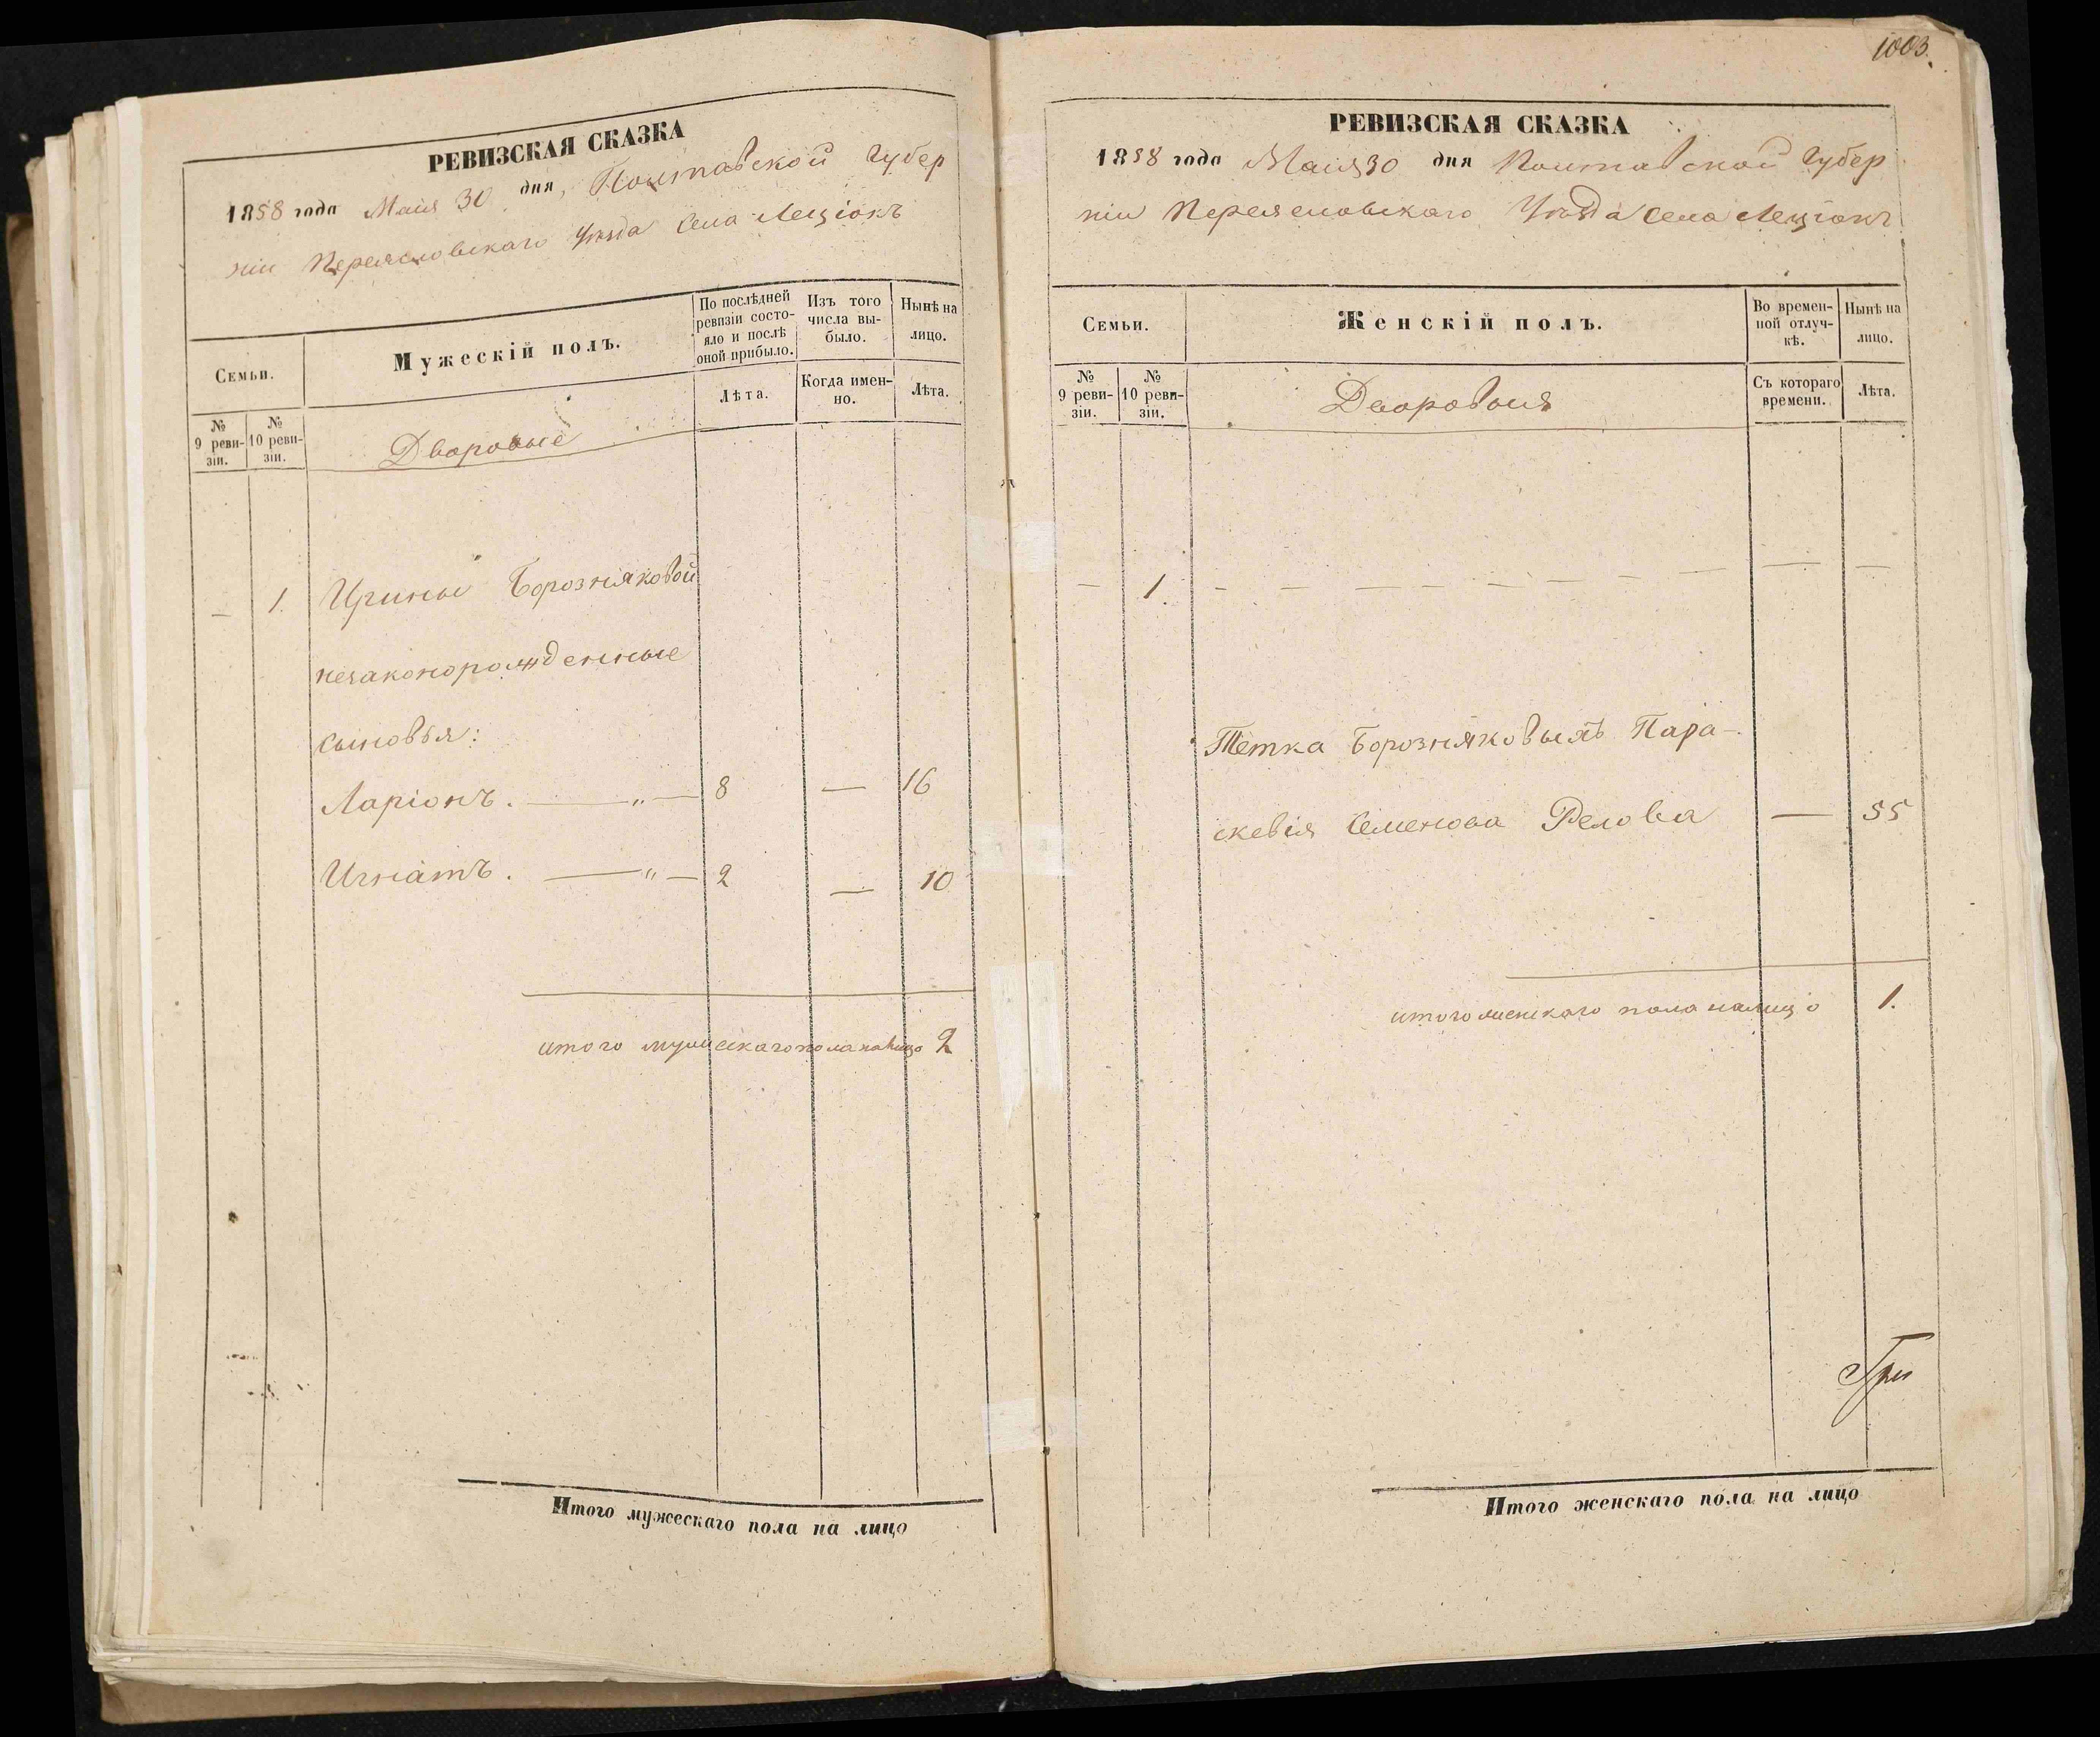 1003.
РЕВИЗСКАЯ СКАЗКА
1858 года Мая 30 дня, Полтавской Губер
ніи Переясловскаго Уѣзда Села Леціокъ
Семьи.
Мужескій полъ.
По послѣдней ревизіи состо-
яло и послѣ
оной прибыло.
Изъ того
числа вы-
было.
Нынѣ на
лицо.
№
9 реви-
зіи.
№
10 реви-
зіи.
Дворовые
Лѣта.
Когда имен-
но.
Лѣта.
— 1. Ирины Борозняковой
незаконорожденные
сыновья:
Ларіонъ. — „ — 8 — 16
Игнатъ. — „ — 2 — 10
итого мужескаго пола налицо 2
Итого мужескаго пола на лицо
РЕВИЗСКАЯ СКАЗКА
1858 года Мая 30 дня Полтавской Губер
ніи Переясловскаго Уѣзда Села Леціокъ
Семьи.
Женскій полъ.
Во времен-
ной отлуч-
кѣ.
Нынѣ на
лицо.
№
9 реви-
зіи.
№
10 реви-
зіи.
Дворовыя
Съ котораго
времени.
Лѣта.
— 1. — — — — — — — — — —
Тетка Борозняковыхъ Пара-
скевія Семенова Релова — 55
итого женскаго пола налицо 1.
Итого женскаго пола на лицо